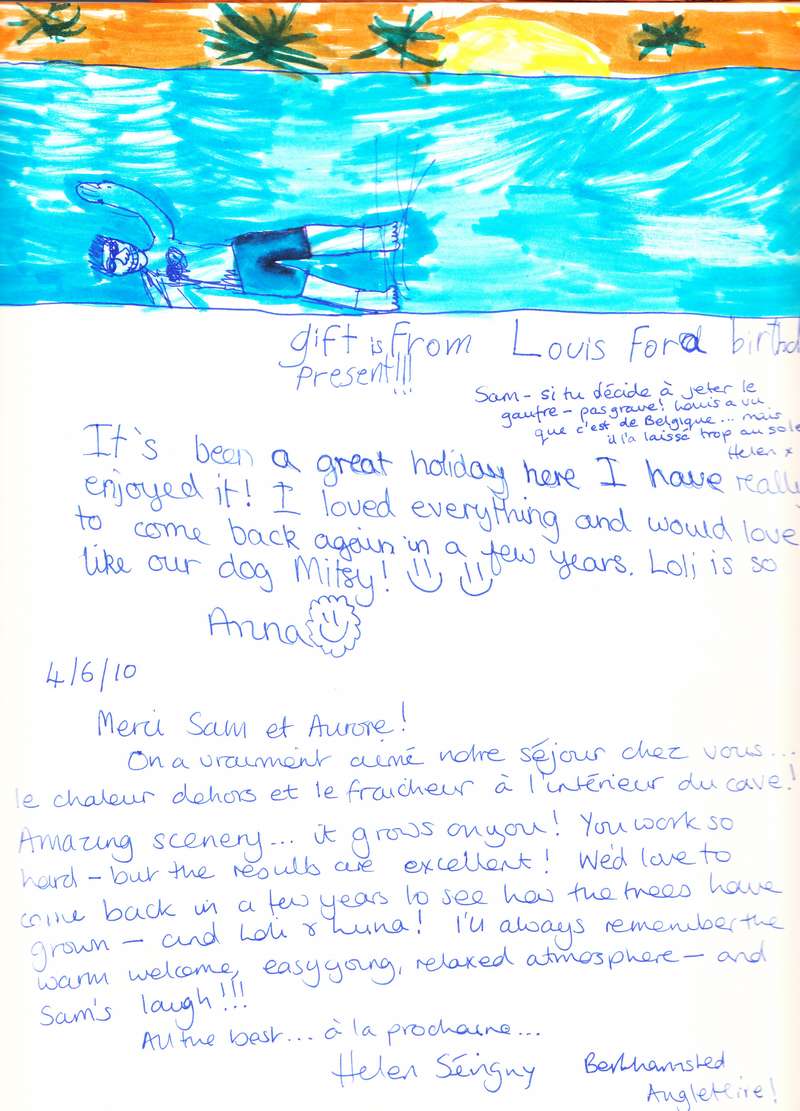 gift is From Louis For a birthd
present!!!
Sam - si tu décide à jeter le
gaufre - pas grave! Louis a vu
que c'est de Belgique... mais
il l'a laissé trop au sole
Helen x
It's been a great holiday here I have really
enjoyed it! I loved everything and would love
to come back again in a few years. Loli is so
like our dog Mitsy!
Anna
4/6/10
Merci Sam et Aurore!
On a vraiment aimé notre séjour chez vous...
le chaleur dehors et le fraicheur à l'intérieur du cave!
Amazing scenery... it grows on you! You work so
hard - but the results are excellent! We'd love to
come back in a few years to see how the trees have
grown - and Loli & Luna! I'll always remember the
warm welcome, easygoing, relaxed atmosphere - and
Sam's laugh!!!
All the best... à la prochaine...
Helen Sévigny Berkhamsted
Angleterre!